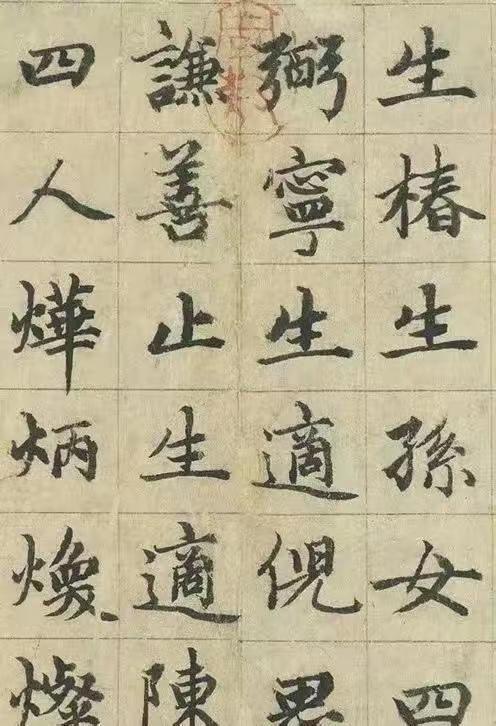 生椿生孫女四
弼寧生適倪
謙善止生適陳
四人燁炳煥燦